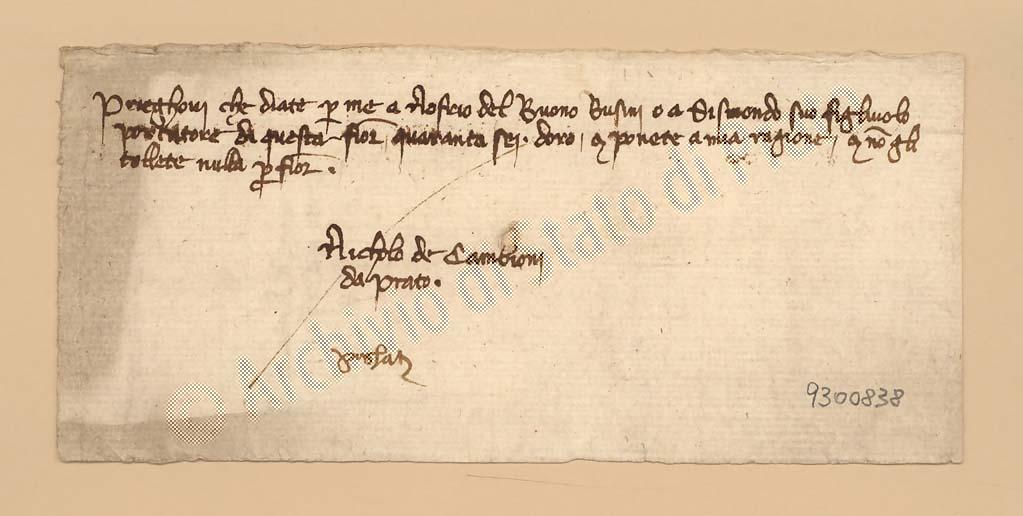 Prieghovi che diate p me a Noficio del Buono Busini o a Sismondo suo figliuolo
portatore di questa fior. quaranta sej. doro. e ponete a mia ragione. e nō gli
tollete nulla p fior.
Nicholo de Cambioni
da prato.
© Archivio di Stato di Prato
9300838